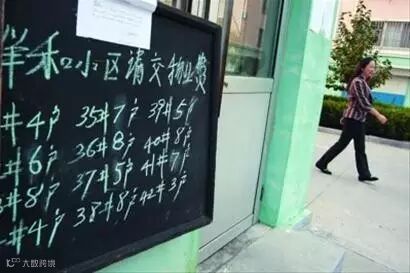 祥和小区请交物业费
#4户 35#7户 39#5户
#6户 36#8户 40#8户
#8户 37#5户 41#7户
#4户 38#8户 42#3户
大数跨境